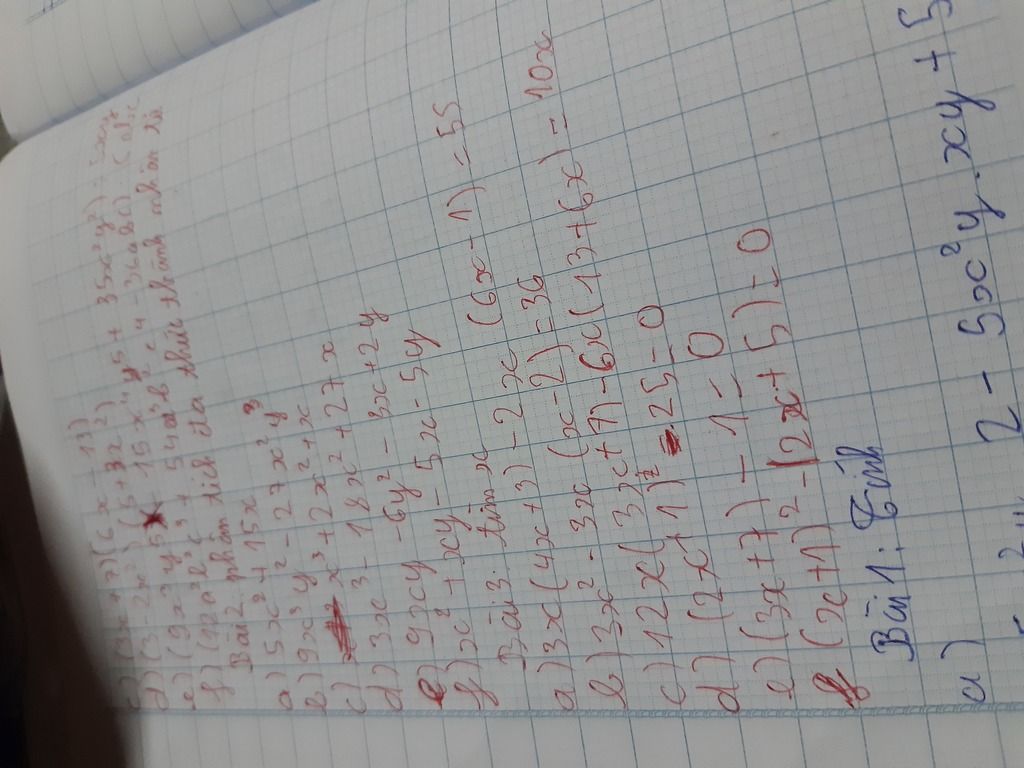 c) (3x+7)(6x-13)
d) (3-2x²)(5+3x²)
e) (9x³y⁵ 15x⁴y⁵ + 35x²y²): 5xy²
f) (12a³b²c³ + 54a³b²c⁴ - 36abc): (abc
Bài 2. phân tích đa thức thành nhân tử
a) 5x² + 15x
b) 9x³y² - 27x²y³
c) x³ + 2x² + x
d) 3x³ - 18x² + 27x
e) 9xy - 6y² - 3x + 2y
g) x² + xy - 5x - 5y
Bài 3. tìm x
a) 3x(4x+3) - 2x (6x-1) = 55
b) 3x² - 3x (x-2) = 36
c) 12x( 3x+7) - 6x(13+6x) = 10x
d) (2x+1)² - 25 = 0
e) (3x+7) - 1 = 0
f (x+1)² - (2x+5) = 0
Bài 1: Tính
a) 2 - 5x²y.xy + 5